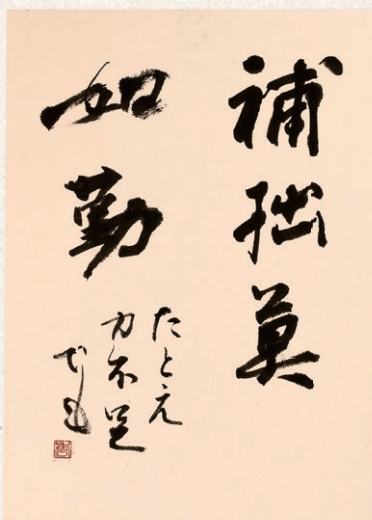 補拙莫
如勤
たとえ
力不足
でも